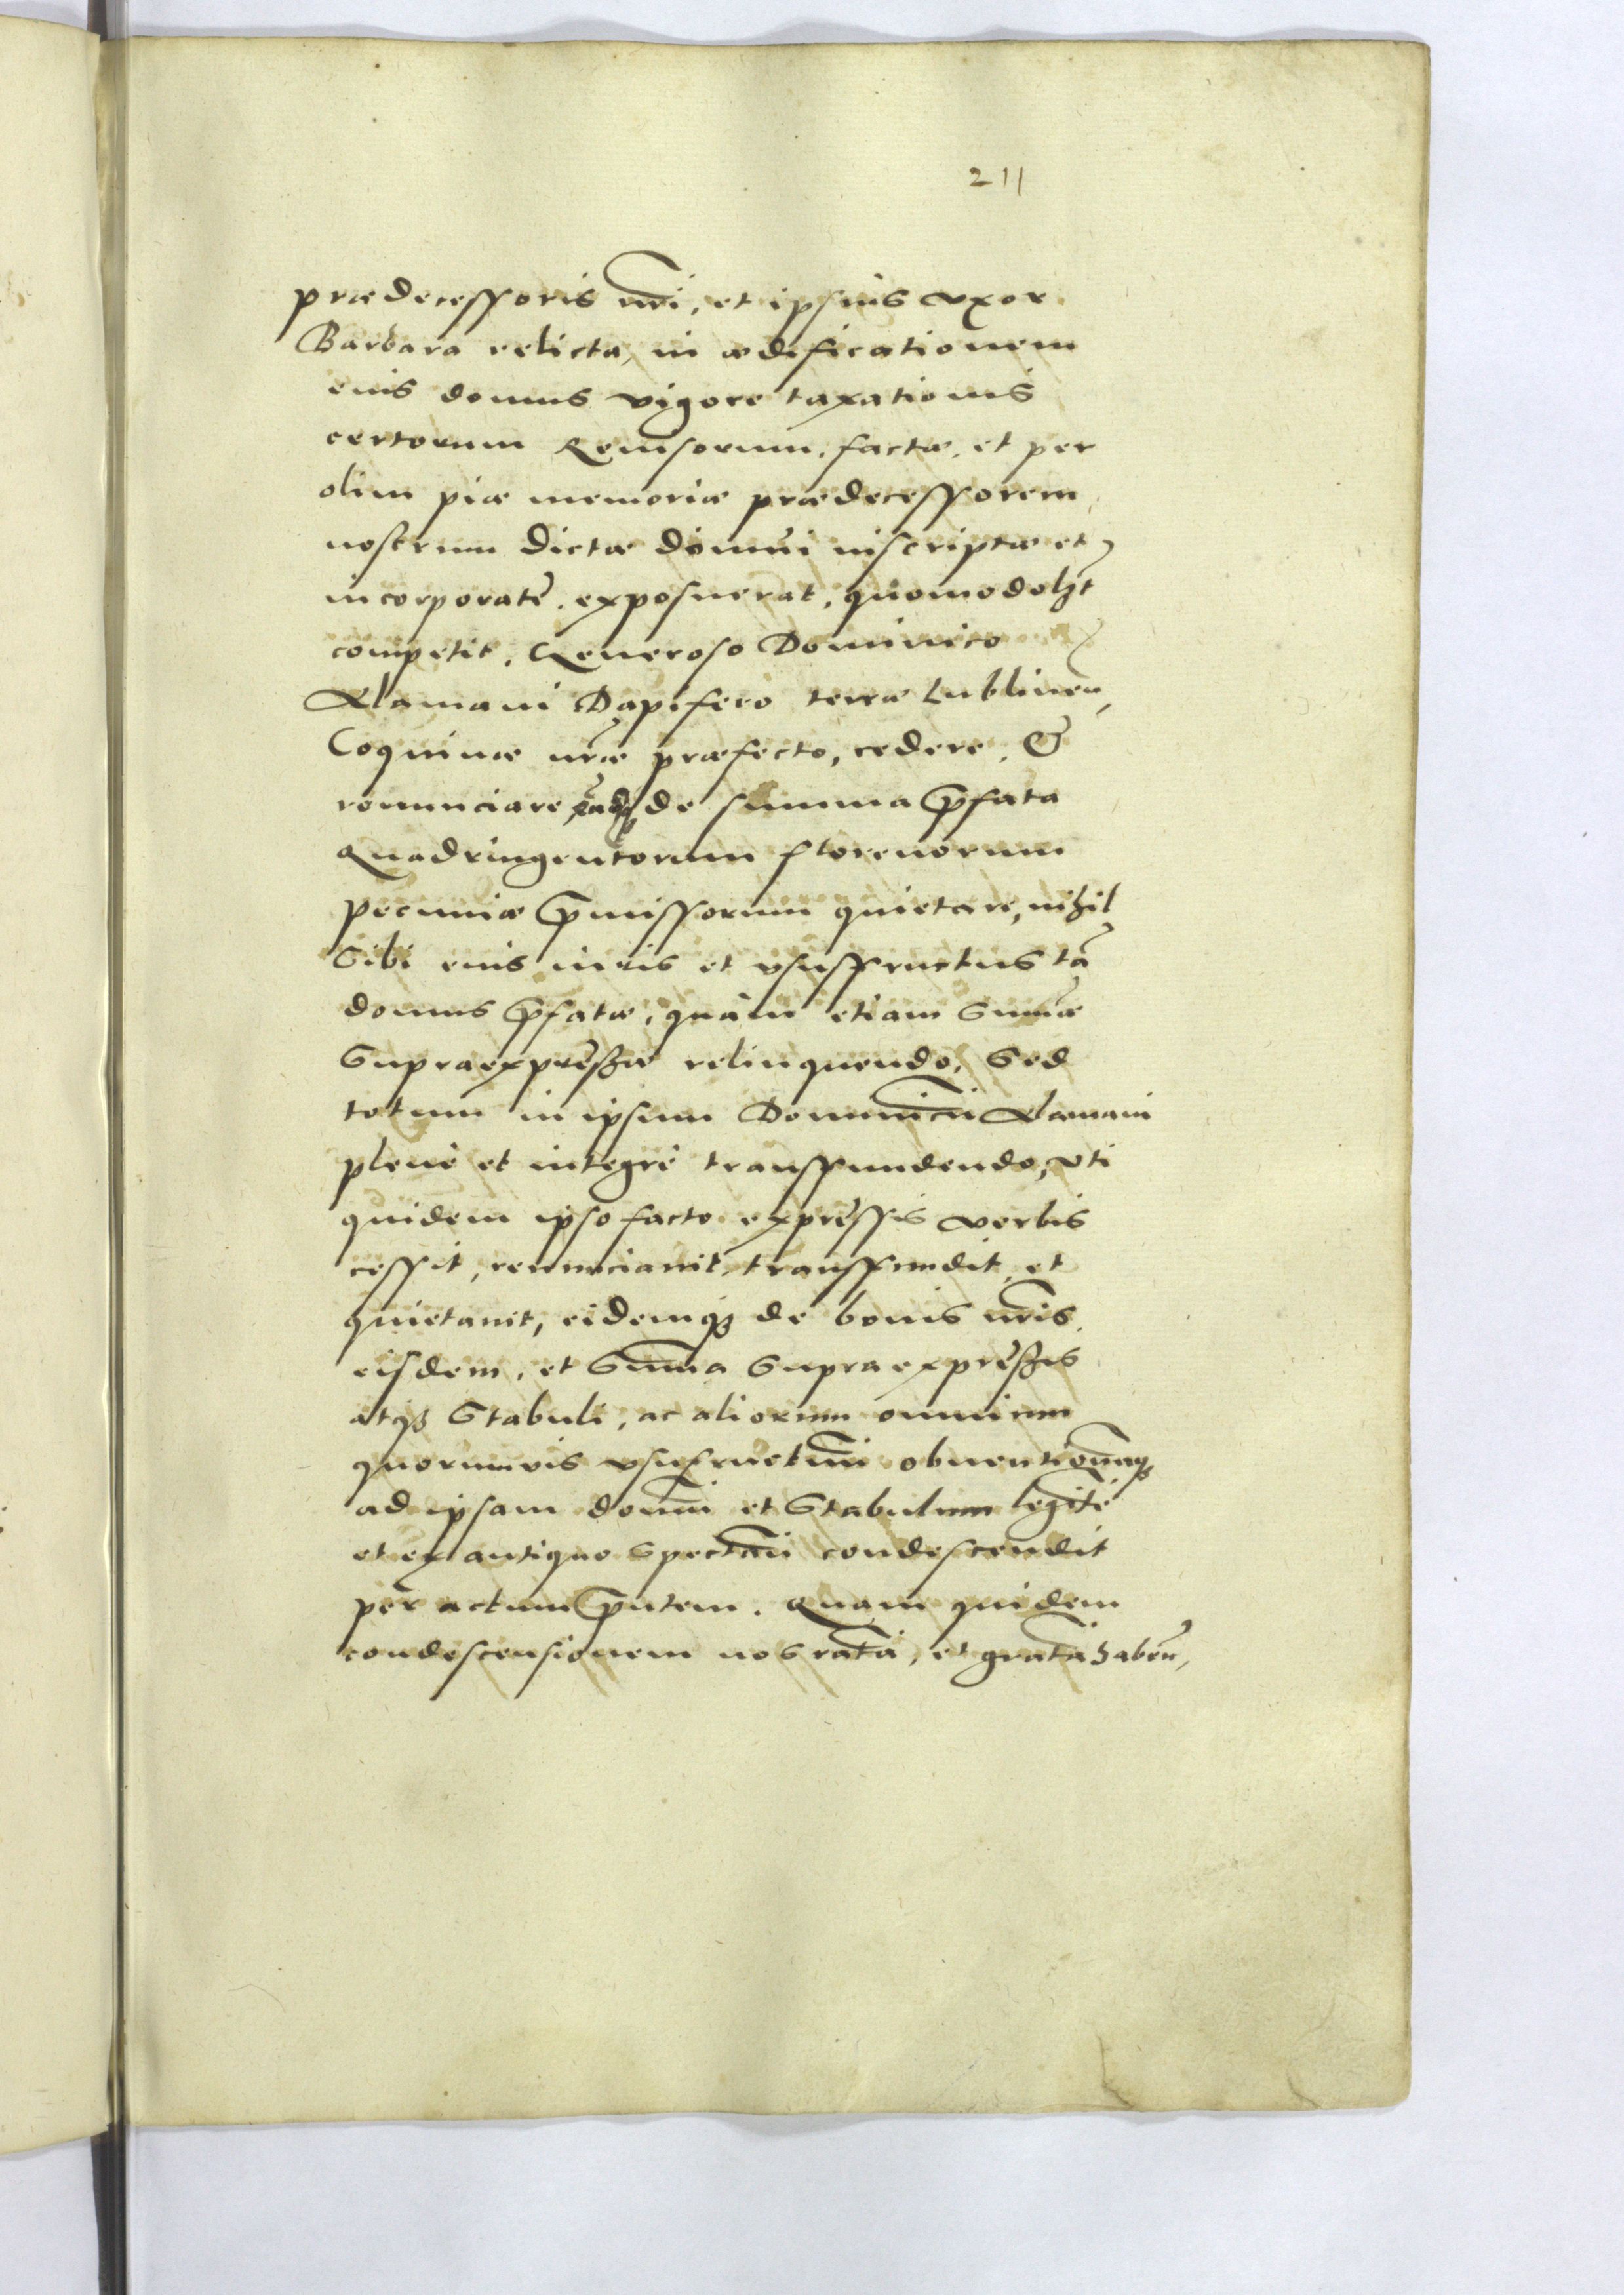 211
prædecessoris nr̃i, et ipsius uxor
Barbara relicta, in ædificationem
eius domus vigore taxationis
certorum Reuisorum, factæ, et per
olim piæ memoriæ prædecessorem
nostrum dictæ domui inscriptæ et
incorporatẽ, exposuerat, quomodolꝫt
competit, Generoso Dominico
Alamani Dapifero terræ Lublineñ,
Coquinæ nr̃æ præfecto, cedere, &
renunciare, de summa p̃fata
Quadringentorum florenorum
pecuniæ p̃missorum quietare, nihil
Sibi eius iuris et ususfructus tã
domus p̃fatæ, quàm etiam Sum̃æ
Supraexpressæ relinquendo, Sed
totum in ipsum Dominicũ Alamani
plenè et integrè transfundendo, uti
quidem ipso facto expressis verbis
cessit, renunciauit, transfundit, et
quietauit, eidemqꝫ de bonis nr̃is
eisdem, et Sum̃a Supra expressis
atqꝫ Stabuli, ac aliorum omnium
quorumuis usufructuũ obuentionũqꝫ
ad ipsam domũ et Stabulum legitẽ
et ex antiquo spectañ condescendit
per actum p̃ntem. Quam quidem
condescensionem nos ratã, et gratã habeñ,